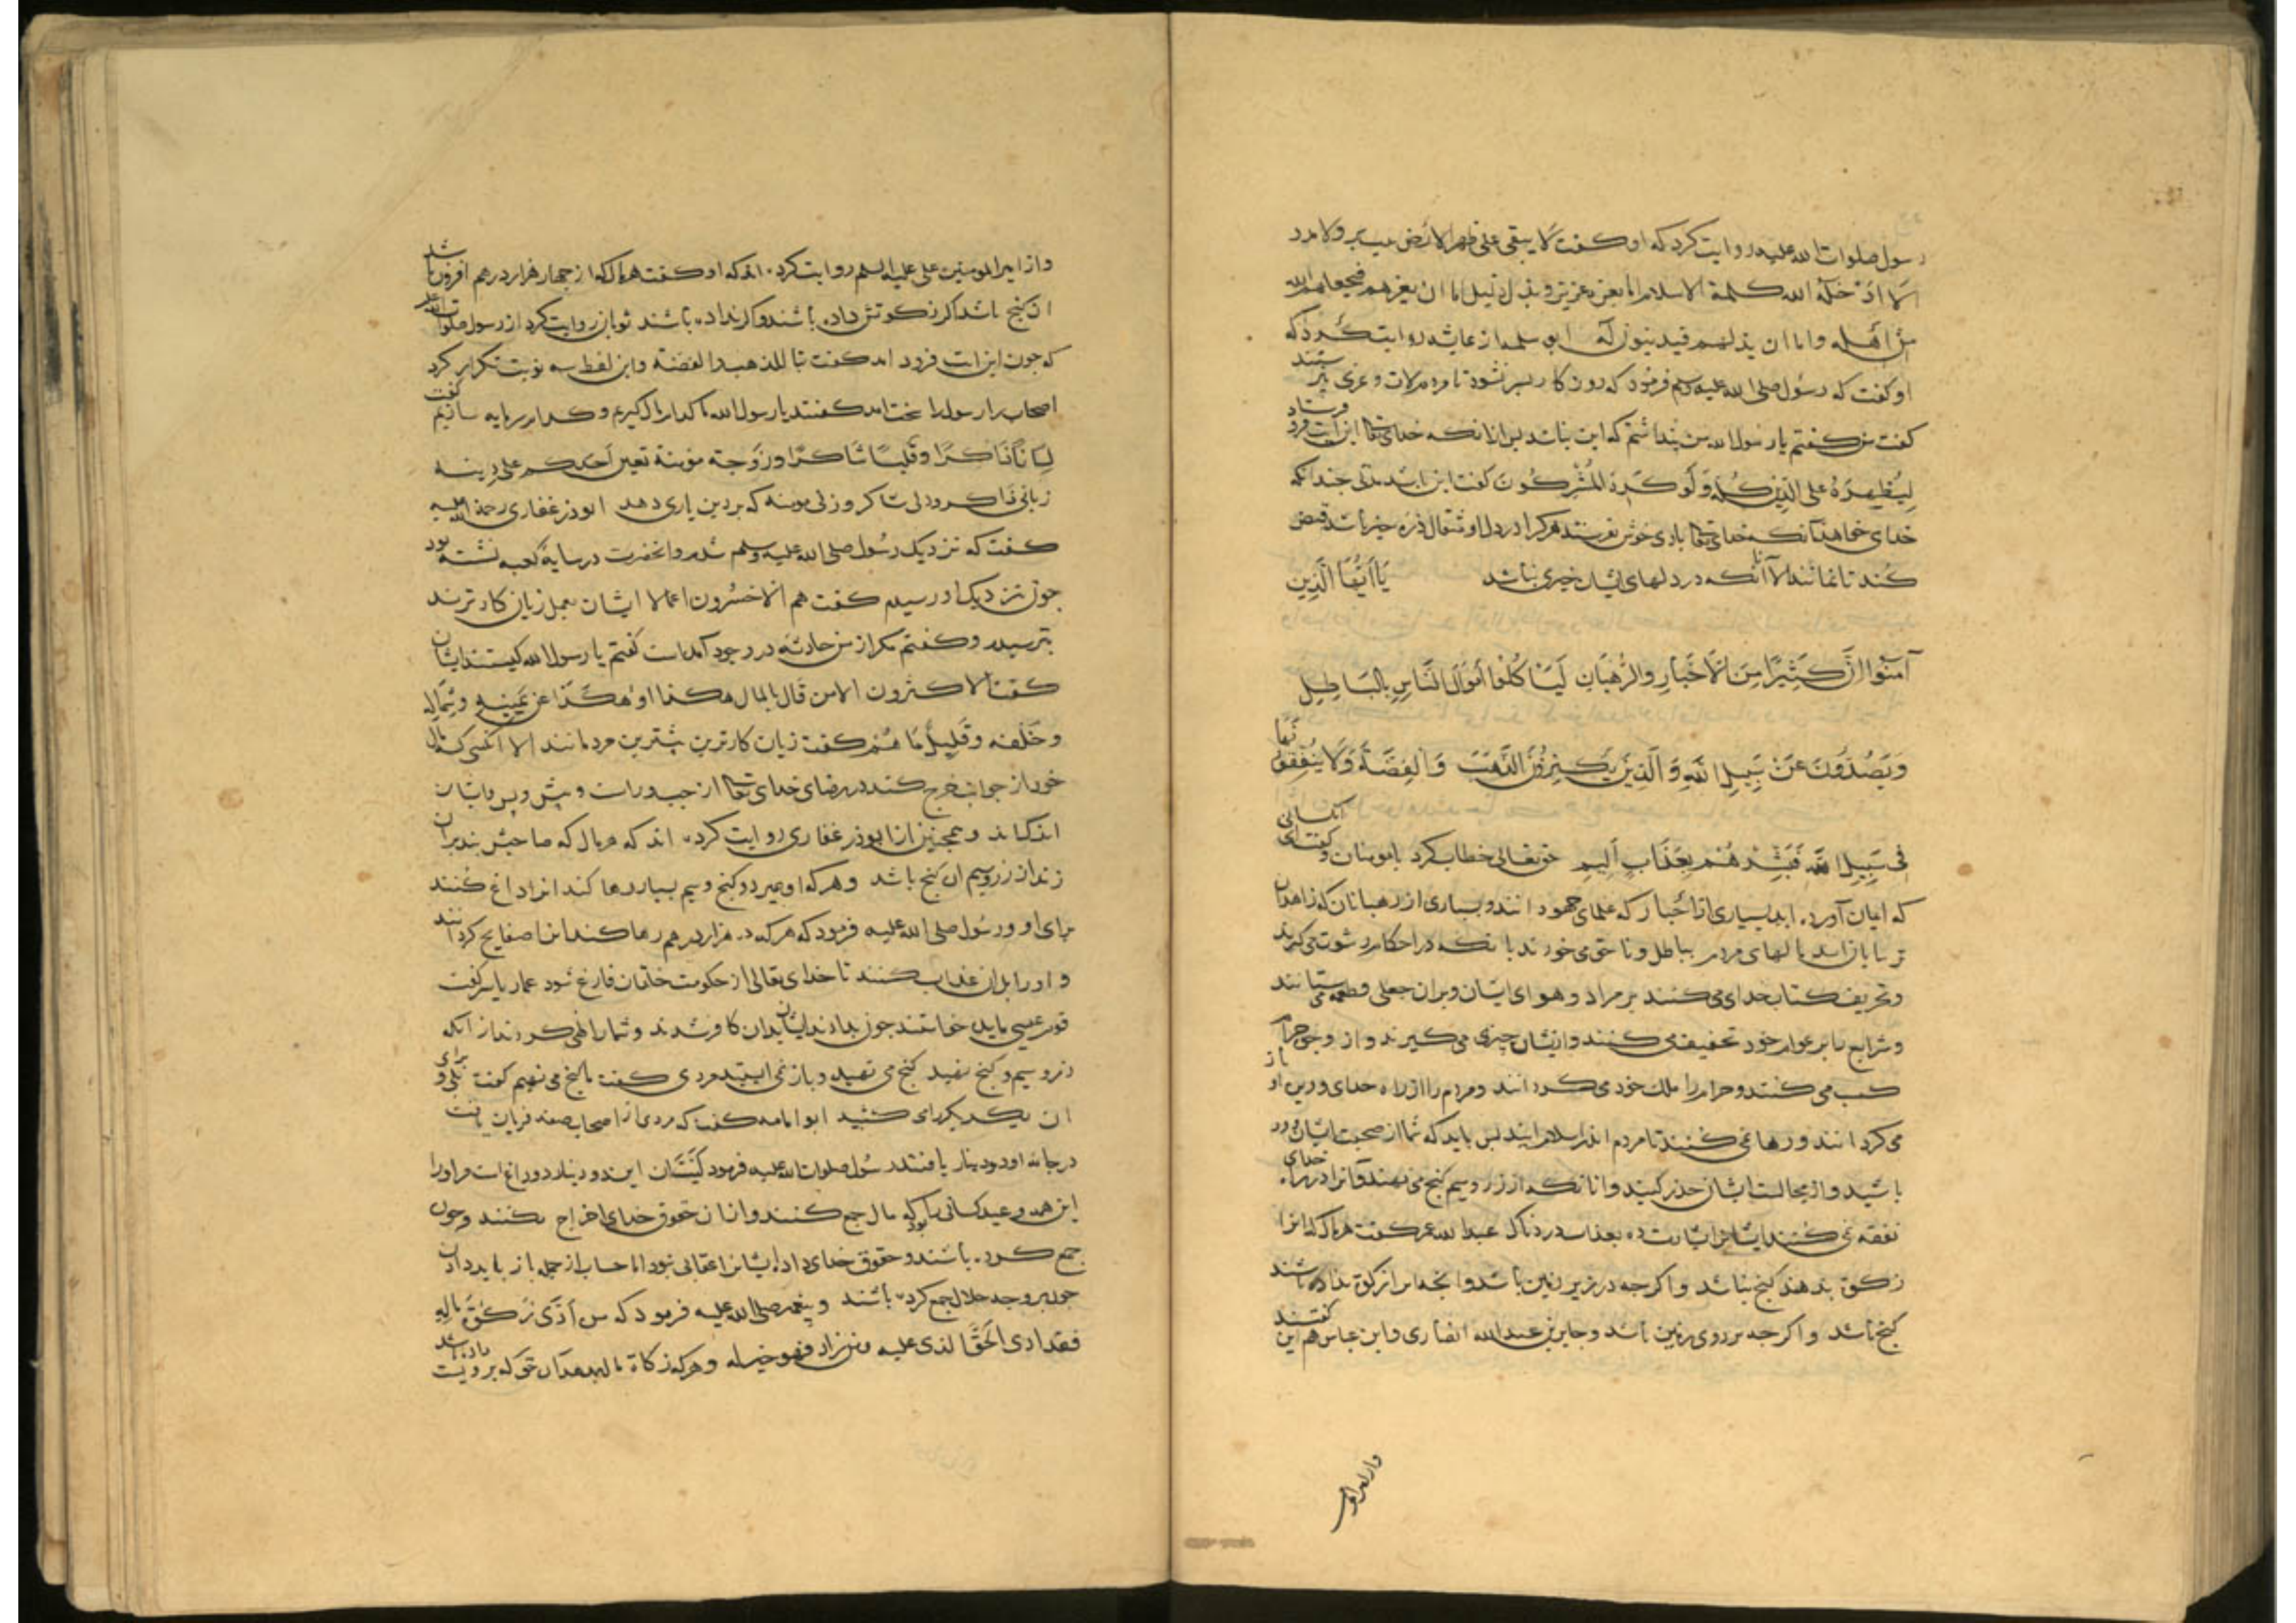 رسول صلوات الله علیه روایت کرد که او کفت لا یبقی علی ظهر الارض بیت مدر ولا
الا ادخله الله کلمة الاسلام اما بعز عزیز و بذل ذلیل اما ان یعزهم فیجعلهم الله
من اهله واما ان یذلهم فیدینون له ابو سلمه از عایشه روایت کرد که
او کفت که رسول صلی الله علیه وسلم فرمود که روزکار بسر نشود تا مردم لات و عزی بپرستند
کفت من کفتم یا رسول الله من پنداشتم که این نباشد پس ازانکه خدای تعالی این ایت فرو فرستاد
لِیُظْهِرَهُ عَلَی الدّینِ کُلِّهِ وَلَوْ کَرِهَ الْمُشْرِکُونَ کفت این باشد مدتی جندانکه
خدای خواهد آنکه خدای تعالی بادی خوش بفرستد هرکرا در دل او مثقال ذره خیر باشد قبض
کند تا نمانند الا آنانکه در دلهای ایشان خیری نباشد یَا اَیُّهَا الَّذِین
آمَنُوا اِنَّ کَثِیرًا مِنَ الْاَحْبَارِ وَالرُّهْبَانِ لَیَاْکُلُوا اَمْوَالَ النَّاسِ بِالْبَاطِلِ
وَیَصُدُّونَ عَنْ سَبِیلِ اللهِ وَالَّذِینَ یَکْنِزُونَ الذَّهَبَ وَالْفِضَّةَ وَلَا یُنْفِقُونَهَا
فِی سَبِیلِ اللهِ فَبَشِّرْهُمْ بِعَذَابٍ اَلِیمٍ حق تعالی خطاب کرد با مومنان و کفت ای آنکسانی
که ایمان آورده اید بسیاری از احبار که علمای جهودانند و بسیاری از رهبانان که زاهدان
ترسایان اند مالهای مردم بباطل و ناحق می خورند بانکه در احکام رشوت می کیرند
و تحریف کتاب خدای می کنند بر مراد و هوای ایشان و بران جعلی و طعمه می ستانند
و شرایع را بر عوام خود تخفیف می کنند و از ایشان چیزی می کیرند و از وجوه حرام
کسب می کنند و حرام را ملک خود می کردانند و مردم را از راه خدای و دین او باز
می کردانند و رها نمی کنند تا مردم اندر اسلام ایند پس باید که شما از صحبت ایشان دور
باشید و از مجالست ایشان حذر کنید وانانکه از زر و سیم کنج می نهند و آنرا در راه خدای
نفقه نمی کنند ایشانرا بشارت ده بعذاب دردناک عبدالله عمر کفت هر مال که انرا
زکوة بدهند کنج نباشد واکرجه در زیر زمین باشد وانجه انرا زکوة نداده باشند
کنج باشد واکرجه بر روی زمین باشد و جابر بن عبدالله انصاری و ابن عباس هم این کفتند
واز امیر المومنین علی علیه السلم روایت کرده اند که او کفت هر مال که از جهار هزار درهم افزون باشد
ان کنج باشد اکر زکوتش داده باشند و اکر نداده باشند ثوبان روایت کرد از رسول صلوات الله علیه
که جون این ایت فرود امد کفت تبا للذهب و الفضة واین لفظ سه نوبت تکرار کرد
اصحاب رسول را سخت امد کفتند یا رسول الله ما کدام مال کیریم و کدام سرمایه سازیم کفت
لِسَانًا ذَاکِرًا وَقَلْبًا شَاکِرًا وَزَوْجَةً مؤمنة تعین احدکم علی دینه
زبانی ذاکر و دلی شاکر و زنی مومنه که بر دین یاری دهد ابوذر غفاری رحمة الله علیه
کفت که نزدیک رسول صلی الله علیه وسلم شدم و انحضرت در سایه کعبه نشسته بود
جون نزدیک او رسیدم کفت هم الاخسرون اعمالا ایشان بعمل زیان کارترند
بترسیدم و کفتم مکر از من حادثه در وجود آمدست کفتم یا رسول الله کیستند ایشان
کفت الاکثرون الا من قال بالمال هکذا او هکذا عن یمینه و شماله
و خلفه وقلیل ما هم کفت زیان کارترین بیشترین مردمانند الا آنکسی که مال
خود از جوانب خرج کند در رضای خدای تعالی از جپ و راست و پیش و پس و ایشان
اندک اند و همجنین از ابوذر غفاری روایت کرده اند که هر مال که صاحبش بند بران
زند از زر و سیم ان کنج باشد وهر که او بمیرد و کنج و سیم بسیار رها کند انرا داغ کنند
برای او و رسول صلی الله علیه فرمود که هر که ده هزار درهم رها کند انرا صفایح کردانند
و او را بدان عذاب کنند تا خدای تعالی از حکومت خلقان فارغ شود عمار یاسر کفت
قوم عیسی مایده خواستند جون بدادند ایشان بدان کافر شدند و شما را نهی کردند از انکه
زر و سیم و کنج نهید کنج می نهید و باز نمی ایستید مردی کفت ما کنج می نهیم کفت بلی و برای
ان یکدیکر را می کشید ابو امامه کفت که مردی از اصحاب صفه فرمان یافت
در جامه او دو دینار یافتند رسول صلوات الله علیه فرمود کَیَّتَان این دو دینار دو داغ است مر او را
این همه وعید کسانی را بود که مال جمع کنند و ازان حقوق خدای اخراج نکنند وجون
جمع کرده باشند و حقوق خدای داده ایشانرا عقابی نبود اما حساب از جمله باز باید دادن
جون بر وجه حلال جمع کرده باشند و پیغمبر صلی الله علیه فرمود که من ادّی زکوة ماله
فقد ادی الحق الذی علیه ومن زاد فهو خیر له و هر که زکاة مال بدهد آن حق که برویست داده باشد